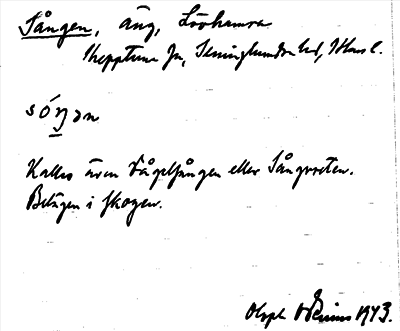 Sången, äng, Lövhamra
Skepptuna sn, Seminghundra hd, Sthms l.
sóŋən
Kallas även Fågelsången eller Sångroten.
Belägen i skogen.
Uppt 1943.